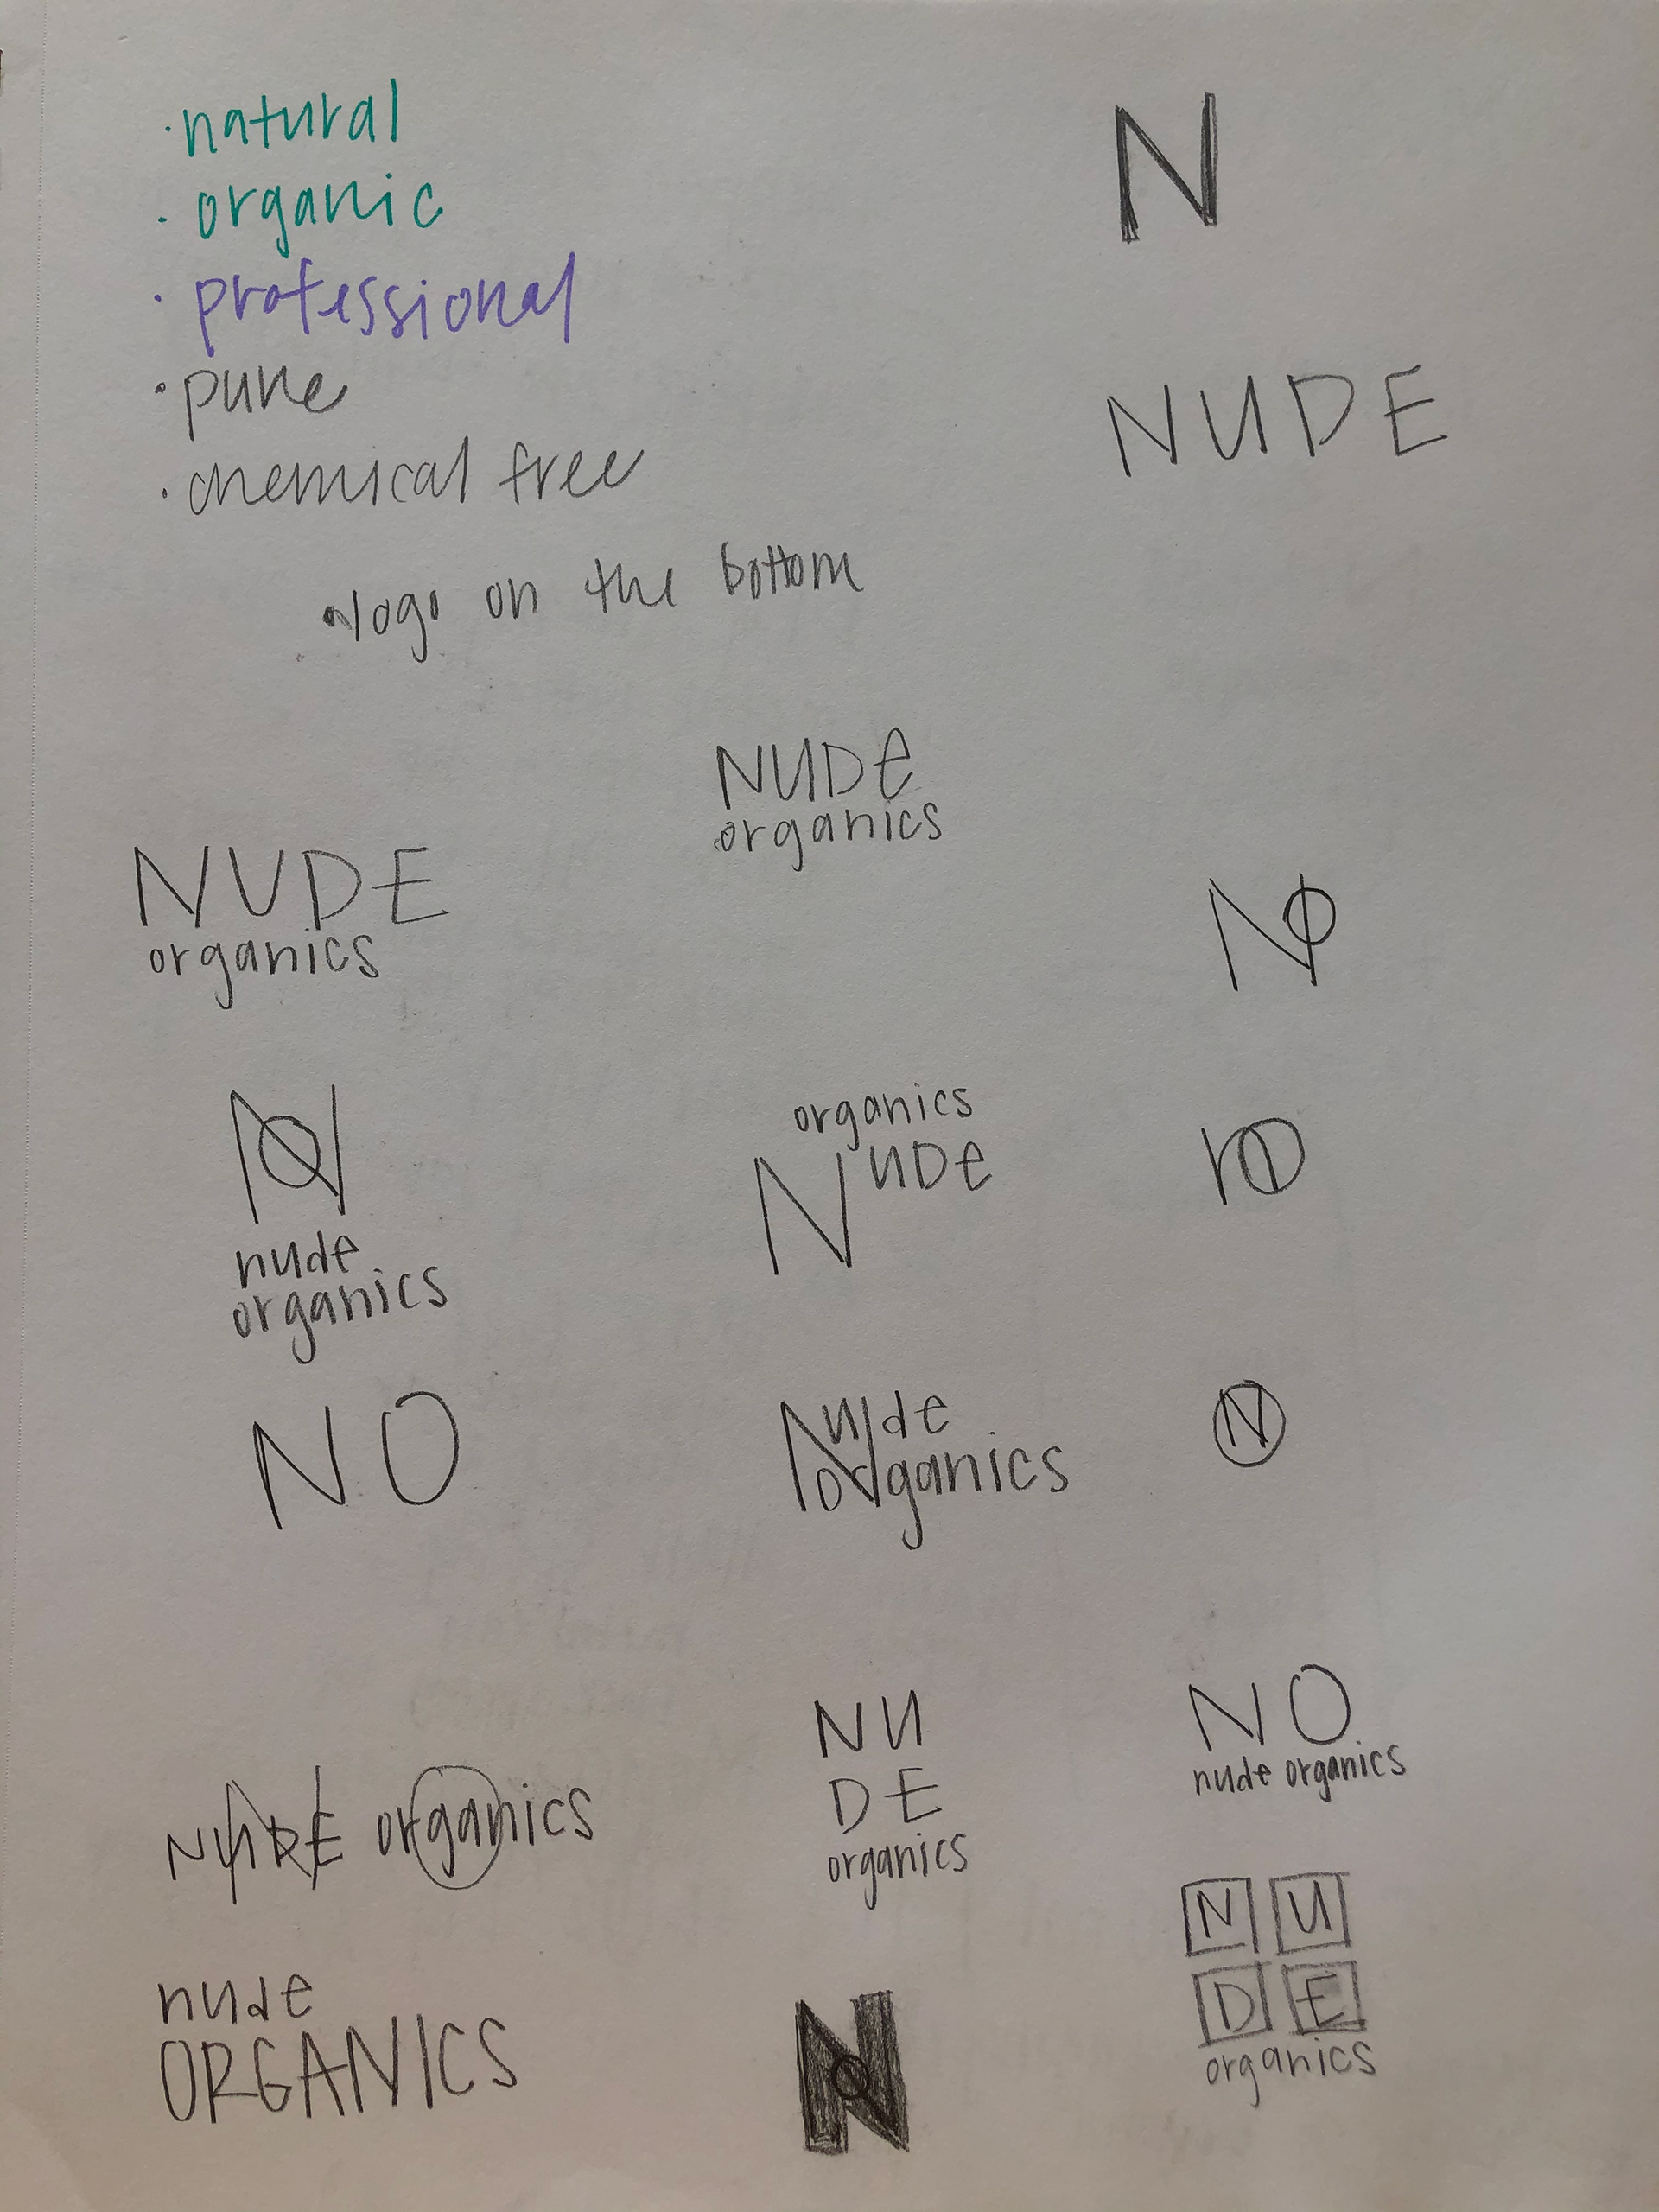 · natural
· organic
· professional
· pure
· chemical free
• logo on the bottom
N
NUDE
NUDe
organics
NUDE
organics
NO
NO
nude
organics
organics
NUDe
nO
NO
Nude
organics
N
NUDE organics
NU
DE
organics
NO
nude organics
nude
ORGANICS
NO
N U
D E
organics